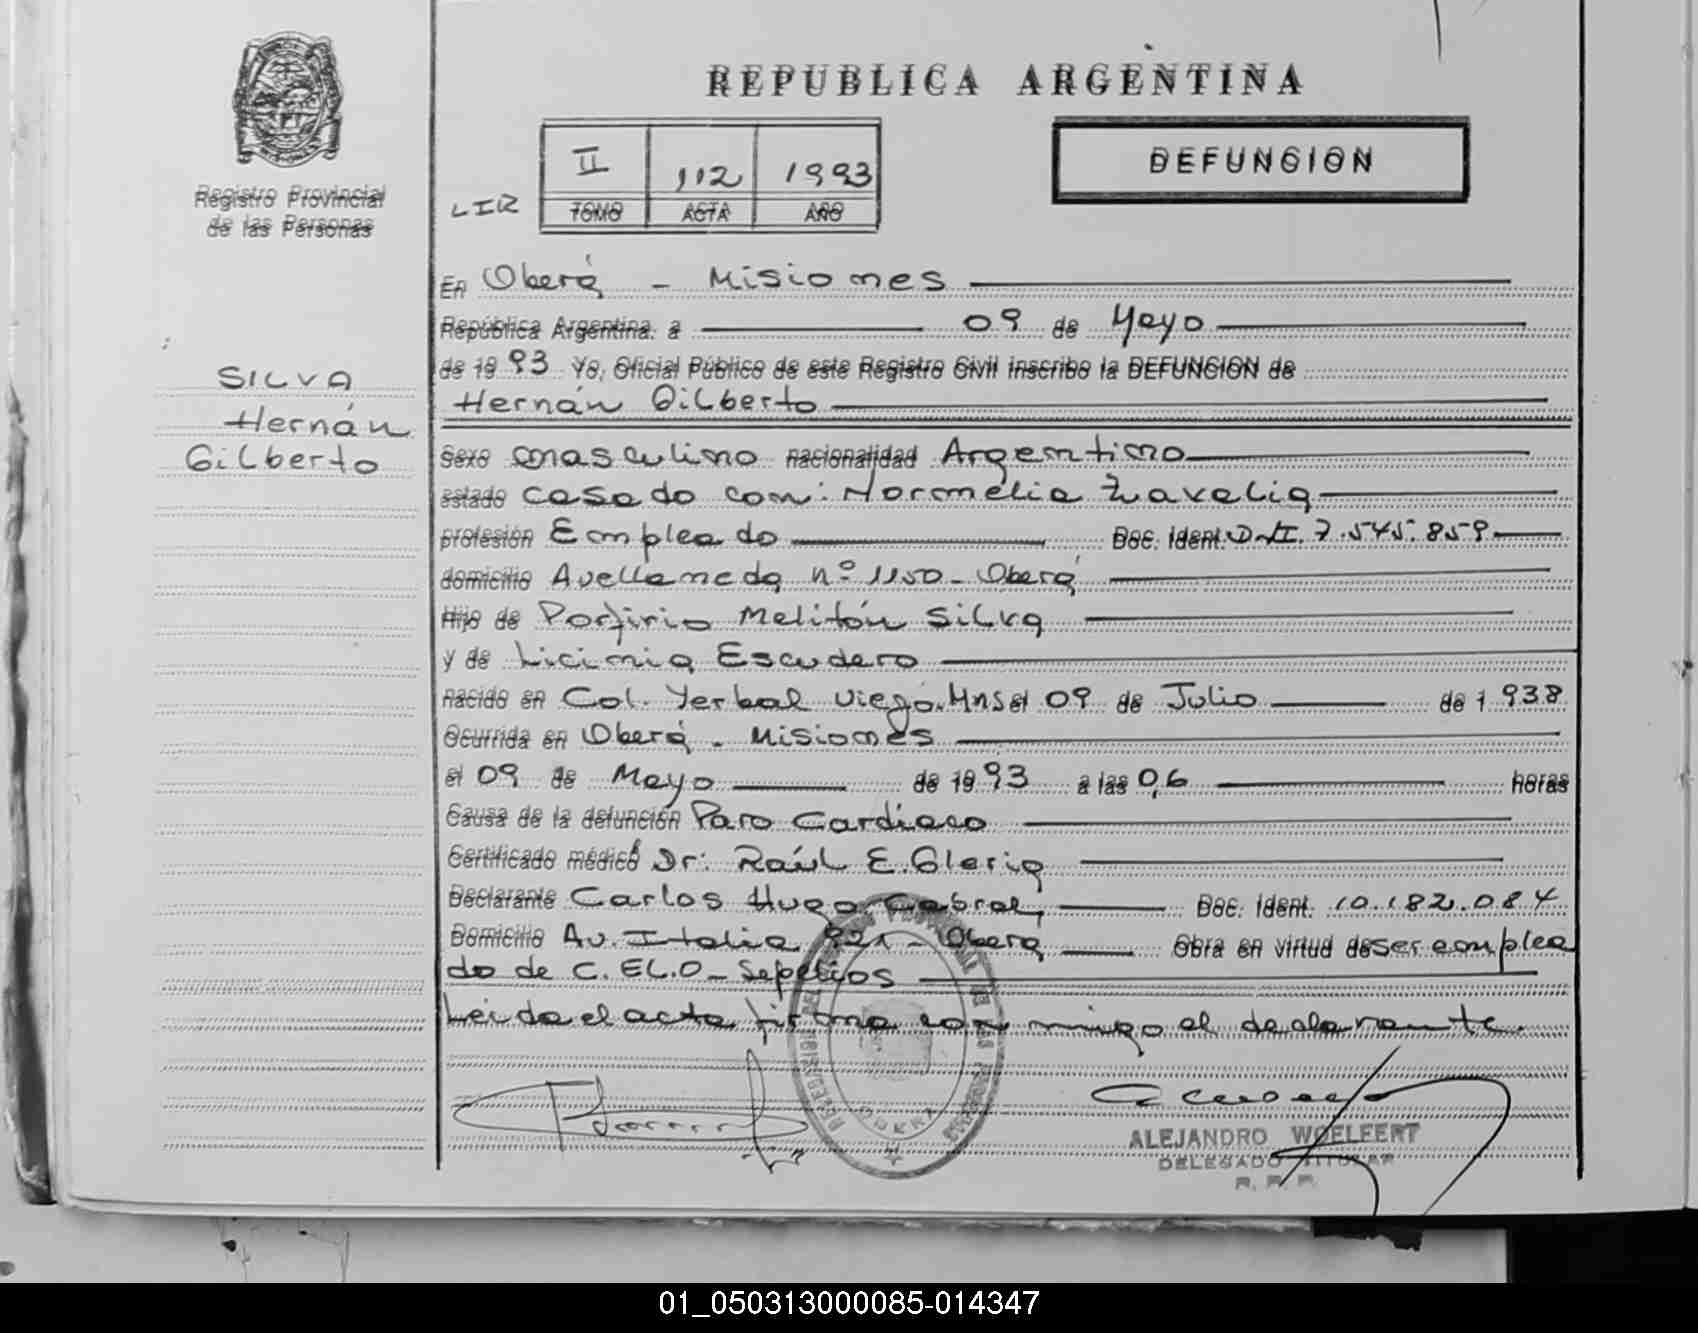 REPUBLICA ARGENTINA
II 112 1993
LIR TOMO ACTA AÑO
DEFUNCION
Registro Provincial
de las Personas
SILVA
Hernán
Gilberto
En Oberá - Misiones
República Argentina. a 09 de Mayo
de 1993 Yo, Oficial Público de este Registro Civil inscribo la DEFUNCION de
Hernán Gilberto
Sexo masculino nacionalidad Argentino
estado casado con: Normelia Zavalia
profesión Empleado Doc. Ident. D.N.I. 7.545.859
domicilio Avellaneda nº 1150 - Oberá
Hijo de Porfirio Melitón Silva
y de Licinia Escudero
nacido en Col. Yerbal Viejo. Mns el 09 de Julio de 1938
Ocurrida en Oberá - Misiones
el 09 de Mayo de 1993 a las 0,6 horas
Causa de la defunción Paro Cardíaco
Certificado médico Dr: Raúl E. Gleria
Declarante Carlos Hugo Cabral, Doc. Ident. 10.182.084
Domicilio Av. Italia 921 - Oberá Obra en virtud de ser emplea
do de C.EL.O - Sepelios
Leida el acta firma con migo el declarante.
OBERA
ALEJANDRO WOELFERT
DELEGADO TITULAR
R. P. P.
01_050313000085-014347